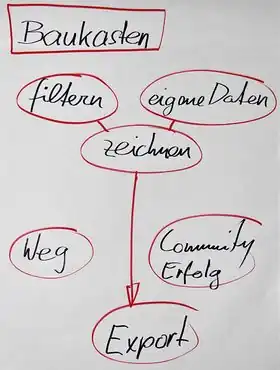 Baukasten
filtern
eigene Daten
zeichnen
Weg
Community
Erfolg
Export